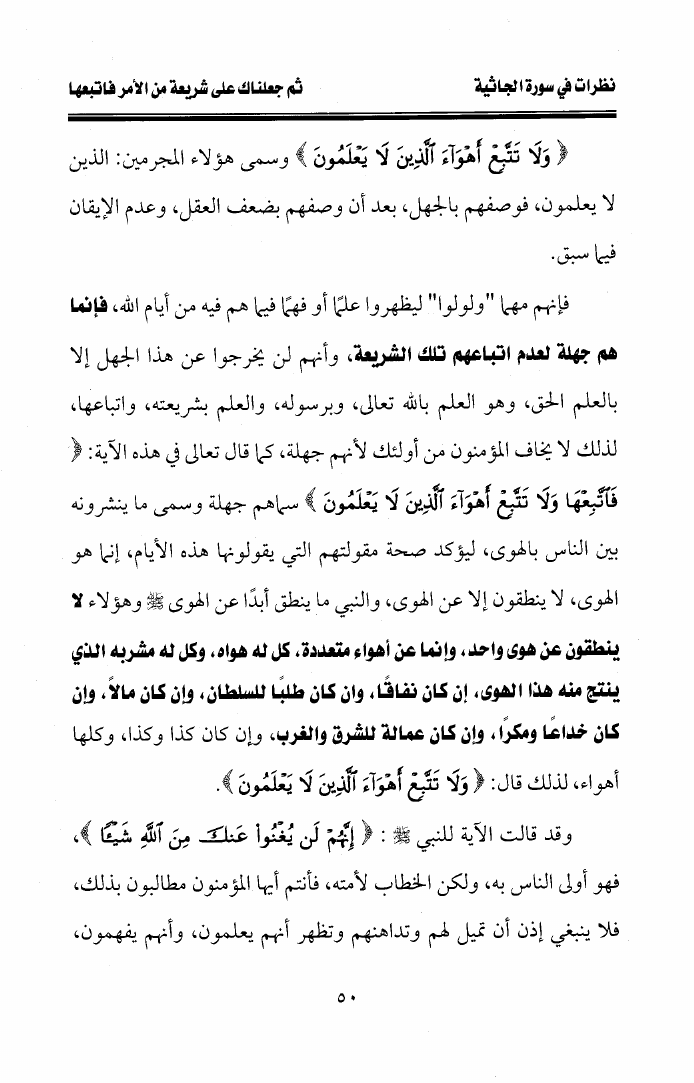 نظرات في سورة الجاثية
ثم جعلناك على شريعة من الأمر فاتبعها
﴿ وَلَا تَتَّبِعْ أَهْوَآءَ ٱلَّذِينَ لَا يَعْلَمُونَ ﴾ وسمى هؤلاء المجرمين: الذين
لا يعلمون، فوصفهم بالجهل، بعد أن وصفهم بضعف العقل، وعدم الإيقان
فيما سبق.
فإنهم مهما "ولولوا" ليظهروا علمًا أو فهمًا فيما هم فيه من أيام الله، فإنما
هم جهلة لعدم اتباعهم تلك الشريعة، وأنهم لن يخرجوا عن هذا الجهل إلا
بالعلم الحق، وهو العلم بالله تعالى، وبرسوله، والعلم بشريعته، واتباعها،
لذلك لا يخاف المؤمنون من أولئك لأنهم جهلة، كما قال تعالى في هذه الآية: ﴿
فَٱتَّبِعْهَا وَلَا تَتَّبِعْ أَهْوَآءَ ٱلَّذِينَ لَا يَعْلَمُونَ ﴾ سماهم جهلة وسمى ما ينشرونه
بين الناس بالهوى، ليؤكد صحة مقولتهم التي يقولونها هذه الأيام، إنما هو
الهوى، لا ينطقون إلا عن الهوى، والنبي ما ينطق أبدًا عن الهوى ﷺ وهؤلاء لا
ينطقون عن هوى واحد، وإنما عن أهواء متعددة، كل له هواه، وكل له مشربه الذي
ينتج منه هذا الهوى، إن كان نفاقًا، وان كان طلبًا للسلطان، وإن كان مالاً، وإن
كان خداعًا ومكرًا، وإن كان عمالة للشرق والغرب، وإن كان كذا وكذا، وكلها
أهواء، لذلك قال: ﴿ وَلَا تَتَّبِعْ أَهْوَآءَ ٱلَّذِينَ لَا يَعْلَمُونَ ﴾.
وقد قالت الآية للنبي ﷺ : ﴿ إِنَّهُمْ لَن يُغْنُوا۟ عَنكَ مِنَ ٱللَّهِ شَيْـًٔا ﴾،
فهو أولى الناس به، ولكن الخطاب لأمته، فأنتم أيها المؤمنون مطالبون بذلك،
فلا ينبغي إذن أن تميل لهم وتداهنهم وتظهر أنهم يعلمون، وأنهم يفهمون،
٥٠